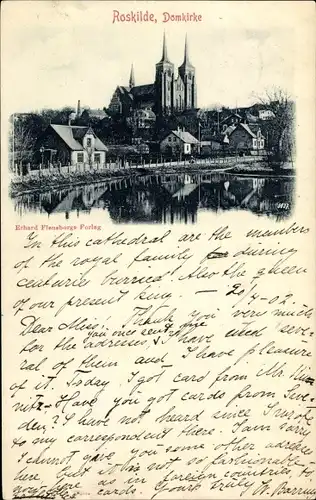 Roskilde, Domkirke
Erhard Flensborgs Forlag
In this cathedral are the members
of the royal family during
centuries burried. Also the queen
of our present king. — 2/7-02.—
Dear Miss. Thank you very much
you once sent me
for the adresses, I have used seve-
ral of them and I have pleasure
of it. Today I got card from Mr.
nitz— Have you got cards from Swe-
den? I have not heard since I wrote
to my correspondent there. I am sorry
I cannot give you some other adresses
here, but it is not so fashionable to
as in foreign countries, to
cards. Yours truly